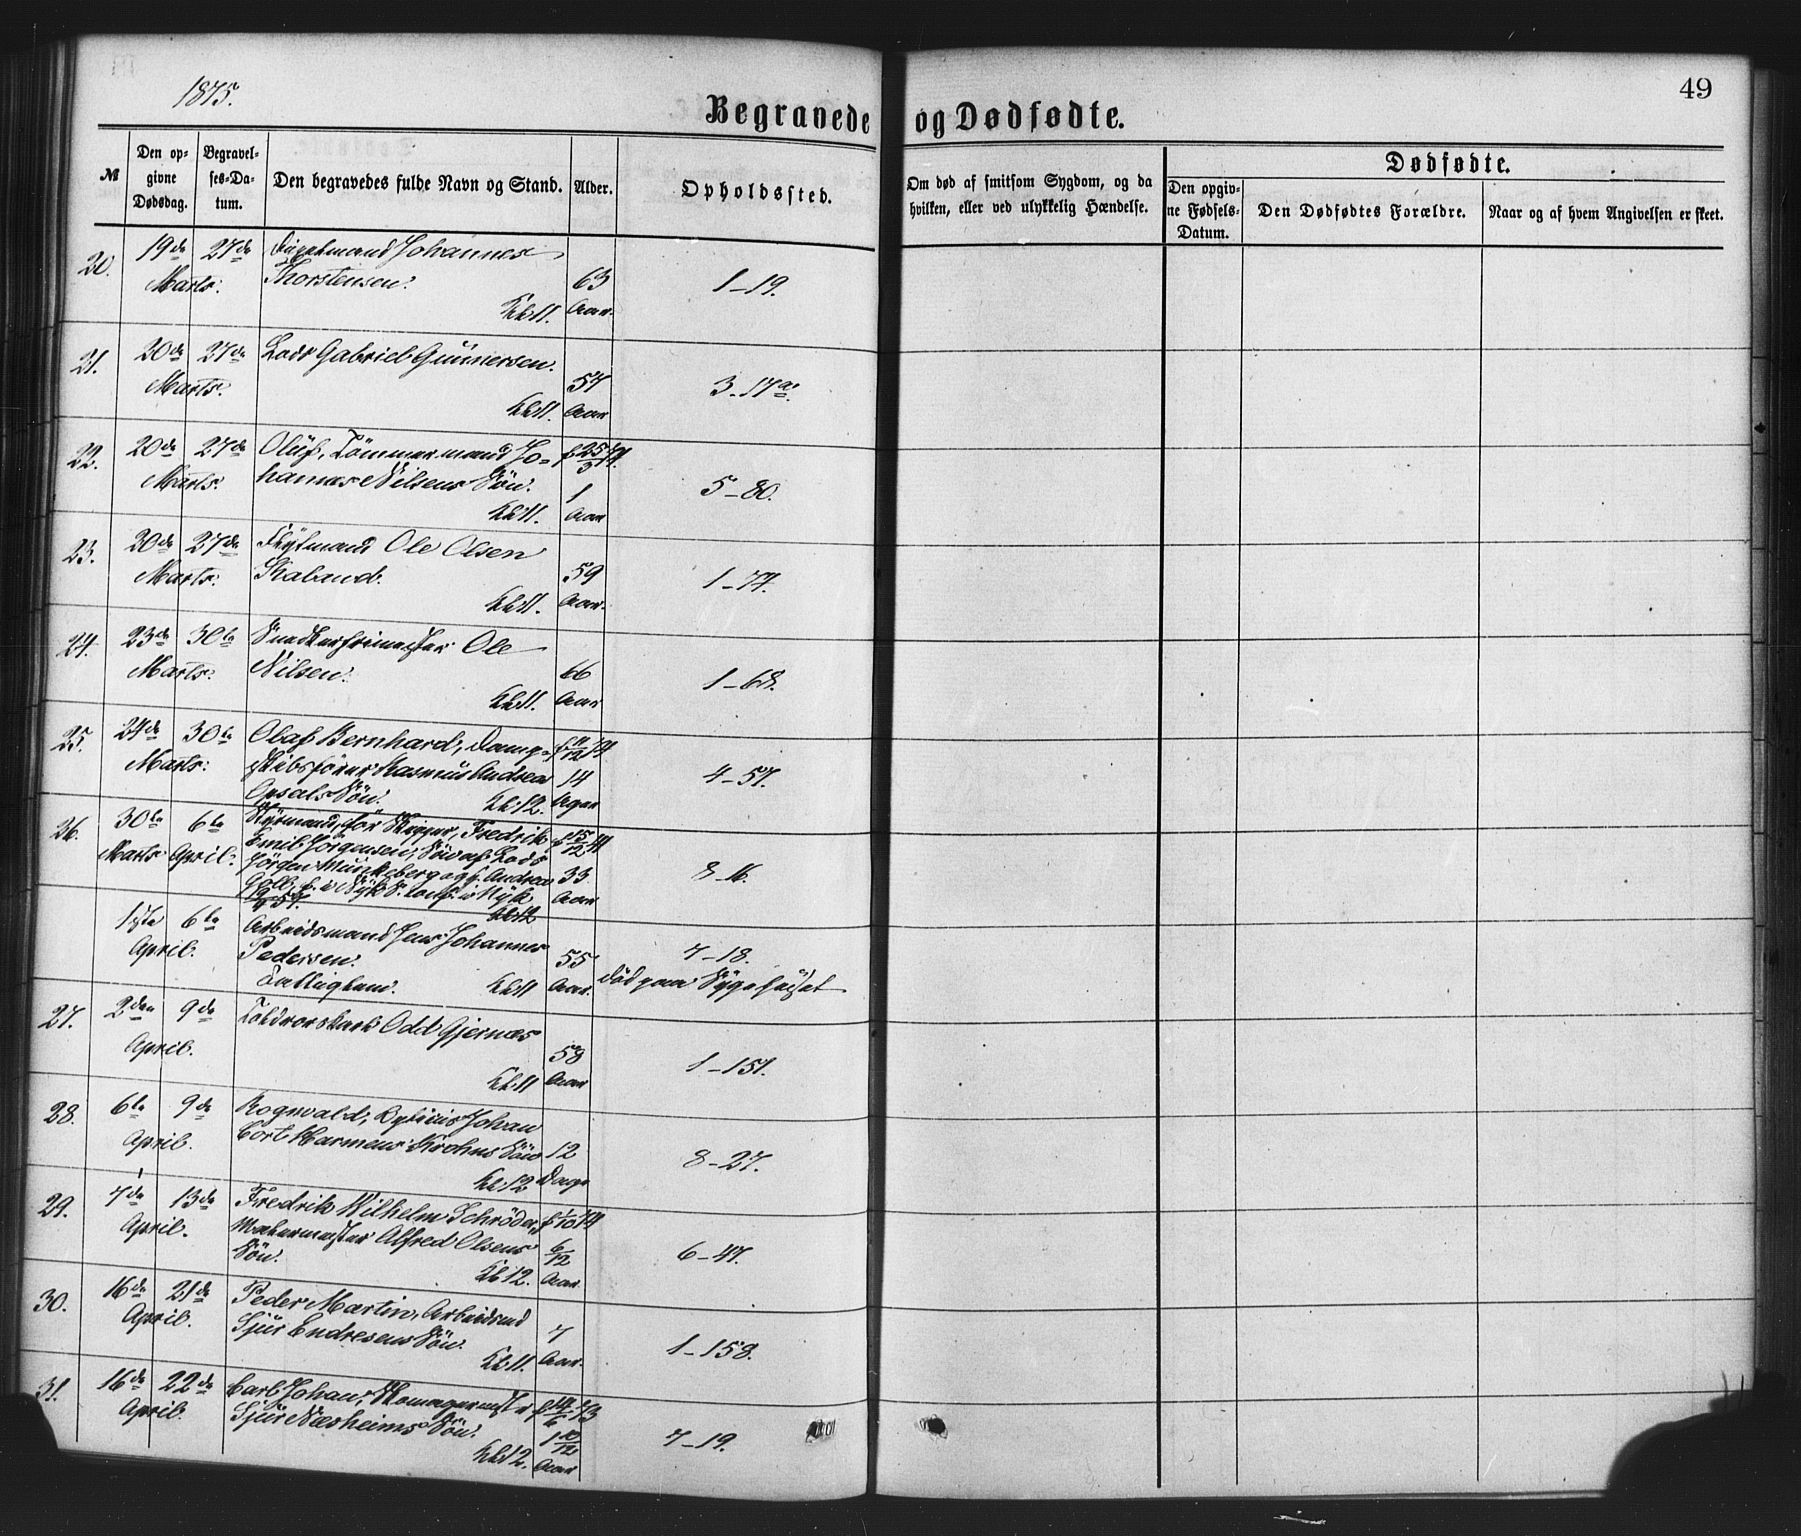 1875.
49
Begravede og Dødfødte.
№
Den op-
givne
Dødsdag.
Begravel-
ses-Da-
tum.
Den begravedes fulde Navn og Stand.
Alder.
Opholdssted.
Om død af smitsom Sygdom, og da
hvilken, eller ved ulykkelig Hændelse.
Dødfødte.
Den opgiv-
ne Fødsels-
Datum.
Den Dødfødtes Forældre.
Naar og af hvem Angivelsen er skeet.
20. 19de Marts. 27de Johannes
Thorstensen.
63 Aar.
Kl. 11.
1-19.
21. 20de Marts. 27de Lods Gabriel Gunnersen.
57 Aar
Kl. 11.
3-17a.
22. 20de Marts. 27de Oluf, Tömmermand Jo-
hannes Nilsens Sön.
f. 25/3 74.
1 Aar
Kl. 11.
5-80.
23. 20de Marts. 27de Flytmand Ole Olsen
59 Aar.
Kl. 11.
1-77.
24. 23de Marts. 30te Snedkersvend Ole
Nilsen.
66 Aar
Kl. 11.
1-68.
25. 24de Marts. 30te Olaf Bernhard, Damp-
skibsförer Rasmus Andreas
Opsals Sön.
14 Uger
Kl. 12.
4-57.
26. 30te Marts 6te April. Styrmand, för Skipper, Fredrik
Emil Jörgensen, Sön af Lods
Jörgen Munkeberg og h. Andrea
33 Aar
Kl. 12
8-16.
1ste April. 6te Arbeidsmand Jens Johannes
Pedersen.
Fattiglem.
55 Aar.
Kl. 11
7-18.
död paa Sygehuset
27. 2den April. 9de Odd Gjernæs
58 Aar
Kl. 11
1-151.
28. 6te April. 9de Rognvald, Bytius Johan
Cort Harmens Krohns Sön
12 Dage
Kl. 12
8-27.
29. 7de April. 13de Fredrik Wilhelm Schröder,
Malermester Alfred Olsens
Sön.
f. 1/10 74
6/12 Aar
Kl. 12.
6-47.
30. 16de April. 21de Peder Martin, Arbeidsmd
Sjur Endresens Sön.
7 Aar.
Kl. 11.
1-158.
31. 16de April. 22de Carl Johan, Skomagermester
Sjur Næsheims Sön.
1 10/12 Aar
Kl. 12.
7-19.